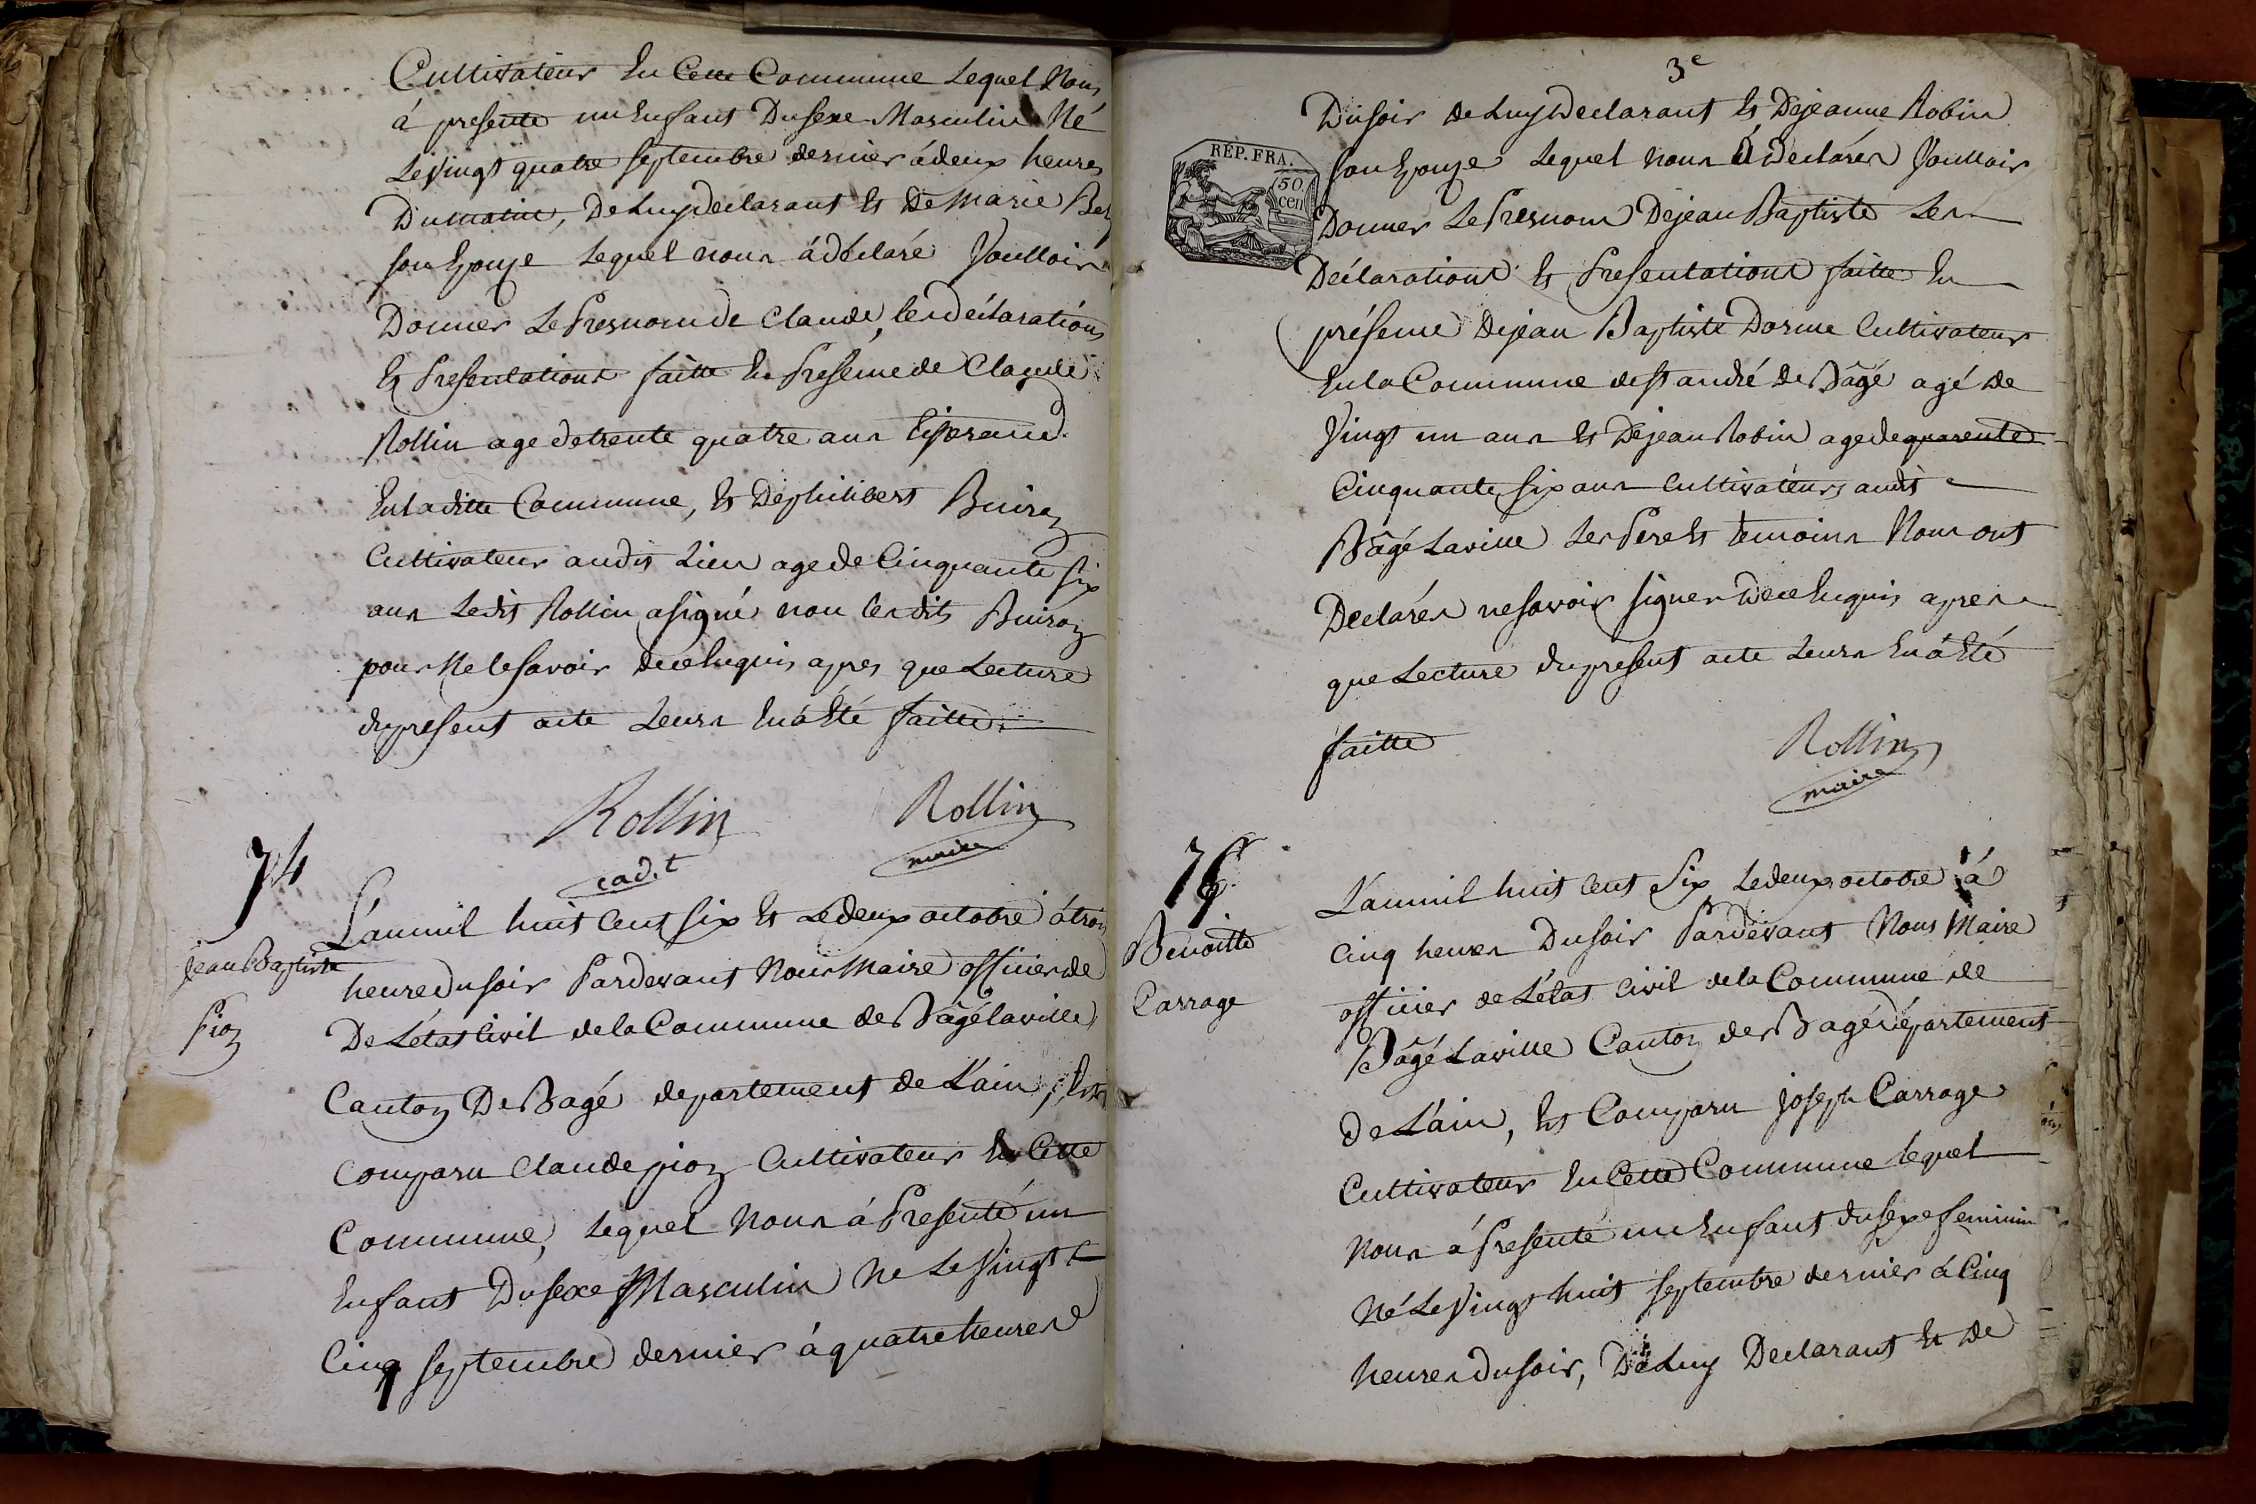 Cultivateur En Cette Commune Lequel Nous
á presenté un Enfant Du sexe Masculin Né
Le Vingt quatre septembre dernier á deux heures
Du matin, De Luy déclarant Et De Marie
son Epouse Lequel nous á déclaré Voulloir
Donner Le Presnom de Claude, les déclarations
Et Presentations faitte En Présence de Claude
Rollin age de trente quatre ans
En la ditte Commune, Et De philibert Buiron
Cultivateur au dit Lieu age de Cinquante six
ans Le dit Rollin a signé non le dit Buiron
pour Ne le savoir de ce Enquis apres que Lecture
du present acte Leurs En á Eté faitte
Rollin
cad.t
Rollin
maire
74
jean Baptiste
pion
L'an mil huit Cent six Et Le deux octobre á trois
heure du soir Pardevant Nous Maire officier de
De L'état Civil de la Commune de Bâgé la ville
Canton De Bagé departement de L'ain, Est
Comparu Claude pion Cultivateur En Cette
Commune, Lequel Nous á Presenté un
Enfant Du sexe Masculin Ne Le Vingt
Cinq septembre dernier á quatre heures
3e
REP. FRA.
50.
cen
Du soir de Luy Declarant Et De jeanne Robin
son Epouse Lequel nous á déclarés Voulloir
Donner Le Presnom De jean Baptiste Les
Déclarations Et Presentations faitte En
présence de jean Baptiste Dorme Cultivateur
En la Commune de St andré de Bâgé agé de
Vingt un ans Et De jean Robin age de quarente
Cinquante six ans Cultivateurs audit
Bâgé Laville Les Pere Et temoins Nous ont
Declarés ne savoir signer de ce Enquis apres
que Lecture du present acte Leurs En á Eté
faitte
Rollin
maire
75
Benoitte
Carrage
L'an mil huit Cent Six Le deux octobre á
Cinq heures Du soir Pardevant Nous Maire
officier de L'état Civil de la Commune de
Bâgé Laville Canton de Bagé département
de L'ain, Est Comparu joseph Carrage
Cultivateur En Cette Commune lequel
Nous á Presenté un Enfant du sexe feminin
Né Le Vingt huit septembre dernier á Cinq
heures Du soir, De Luy Declarant Et de